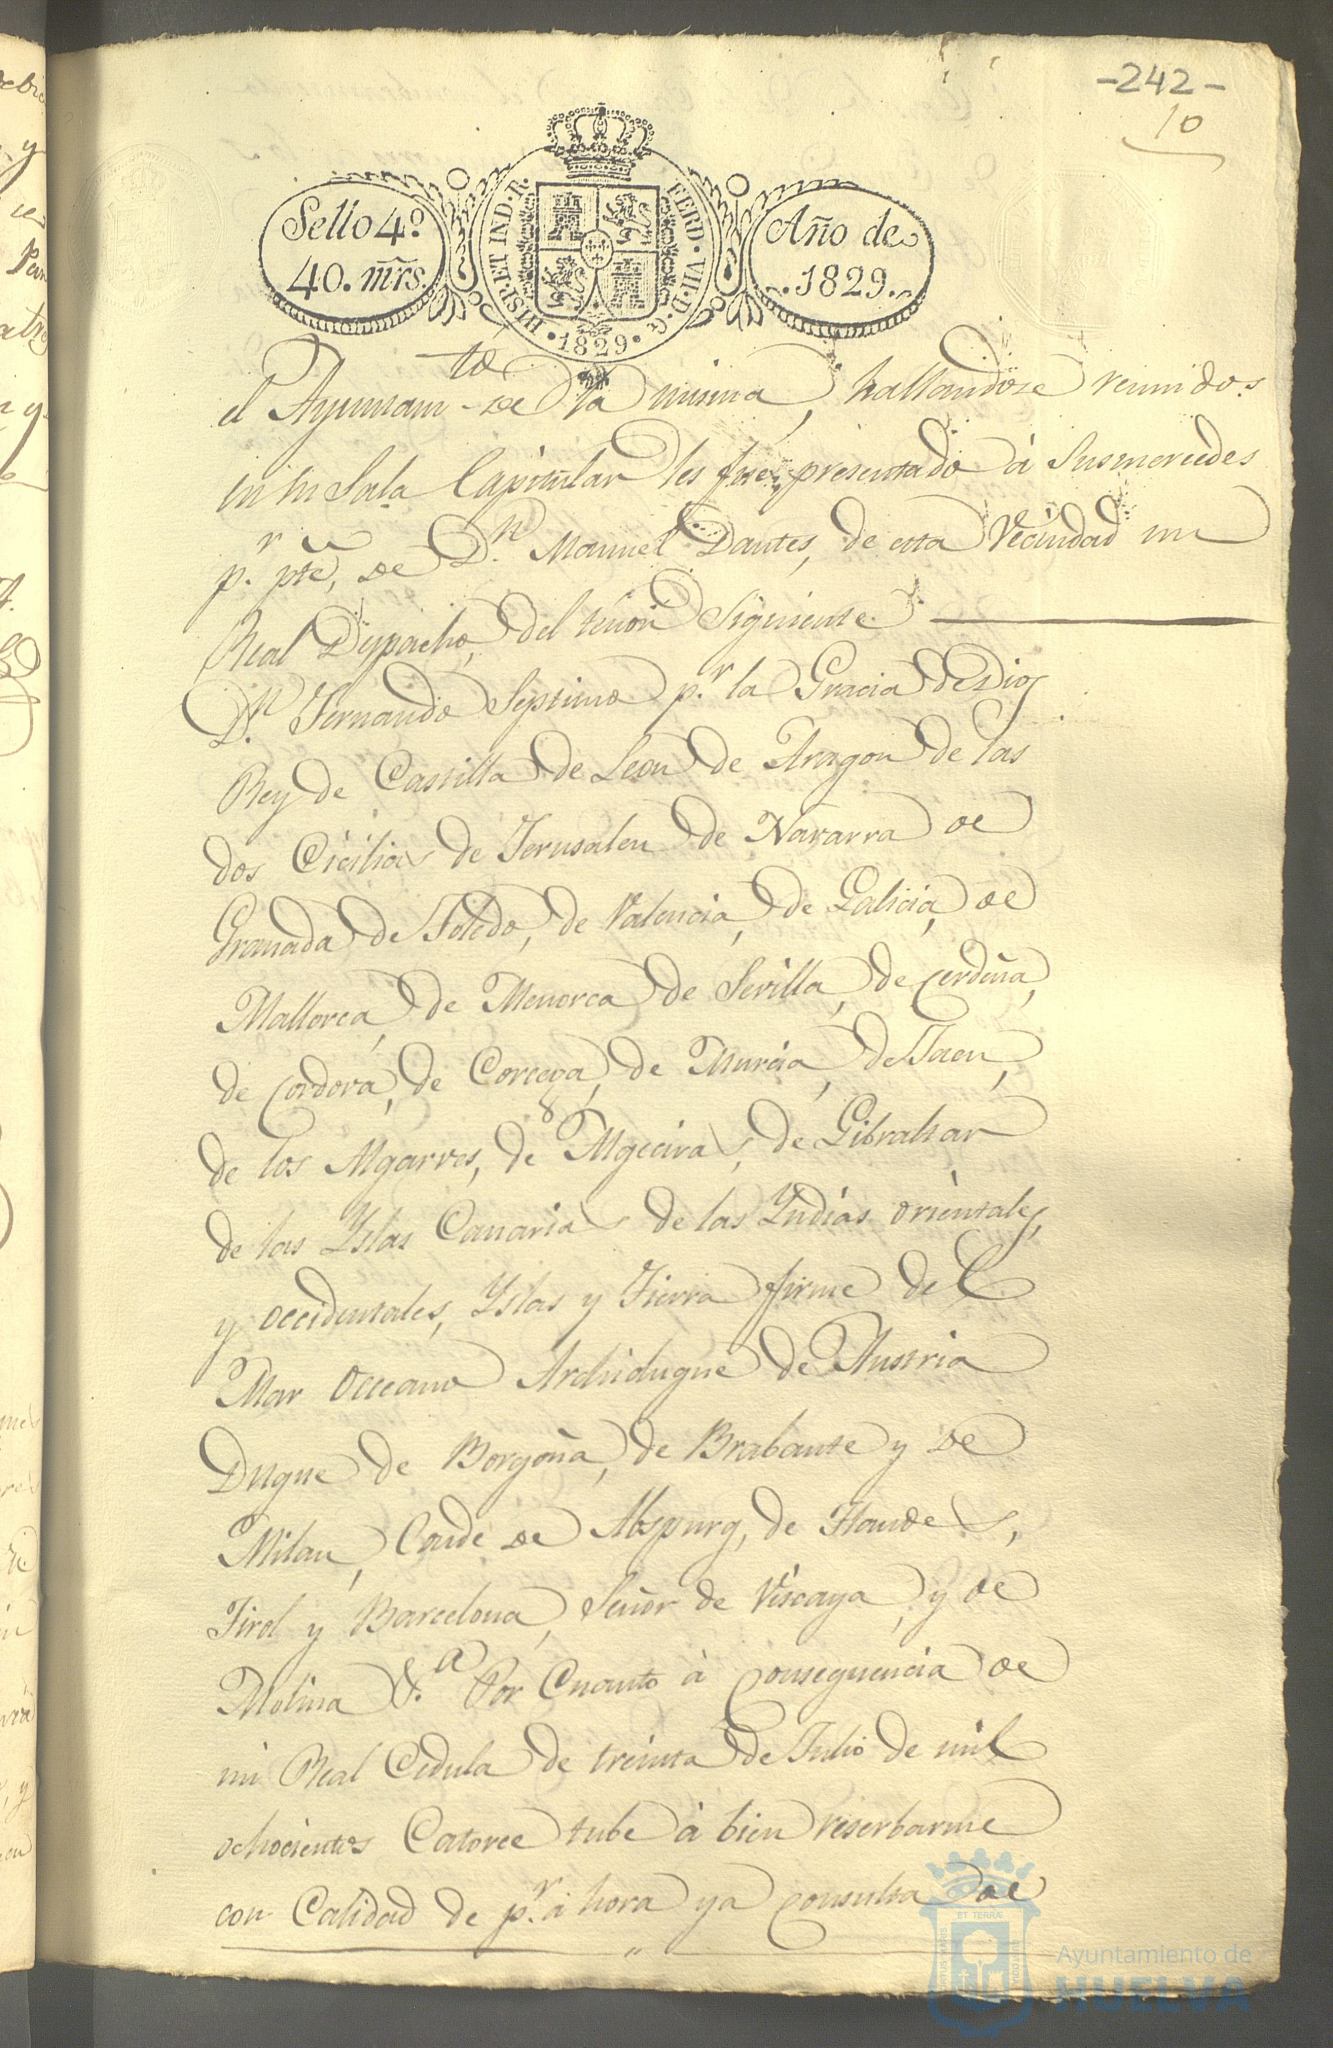 -242-
10
Sello 4º
40. mrs.
HISP. ET IND. R. FERD. VII. D. G.
· 1829 ·
Año de
. 1829 .
el Ayuntam.to de la misma, hallandose reunidos
en su Sala Capitular les fue presentado á Susmercedes
p.r pte, de D.n Manuel Dantes, de esta Vecindad un
Real Despacho, del tenor Siguiente
D.n Fernando Septimo p.r la Gracia de Dios
Rey de Castilla de Leon de Aragon de las
dos Cicilias de Jerusalen de Navarra de
Granada de Toledo, de Valencia, de Galicia, de
Mallorca, de Menorca de Sevilla, de Cerdeña,
de Cordova, de Corcega, de Murcia, de Jaen,
de los Algarves, de Algeciras, de Gibraltar
de las Yslas Canarias de las Yndias orientales,
y occidentales, Yslas y Tierra firme del
Mar Occeano Archiduque de Austria
Duque de Borgoña, de Brabante y de
Milan, Conde de Abspurg, de Flandes,
Tirol y Barcelona, Señor de Viscaya, y de
Molina &.a Por Cuanto á Consequencia de
mi Real Cedula de treinta de Julio de mil
ochocientos Catorce tube á bien reserbarme
con Calidad de p.r ahora ya Consulta de
ET TERRÆ
Ayuntamiento de
HUELVA